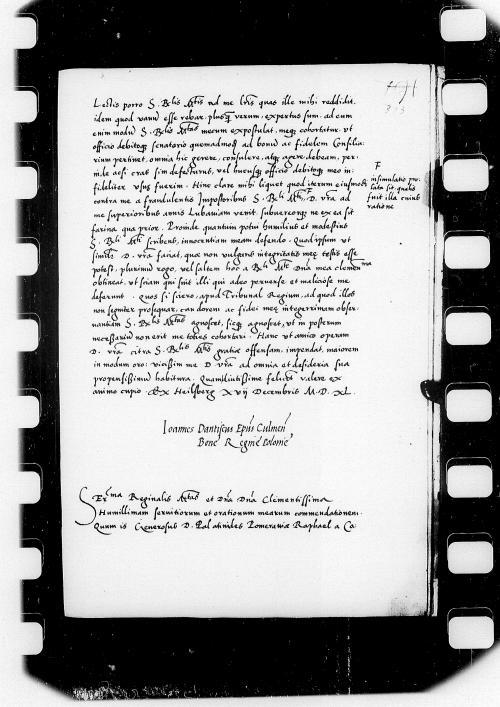 Lectis porro S. Rlis Mtis ad me lris quas ille mihi reddidit,
idem quod vanu esse verum, expertus sum. ad eum
enim modu S. Rlis Mtas mecum expostulat, meq cohortatur, vt
officio debitoq senatorio quemadmodu ad bonu ac fidelem Consilia:
rium pertinet, omnia hic gerere, consulere, atq agere debeam, per:
inde acsi eras sim defecturus, vel hucusq officio debitoq meo in:
fideliter vsus fuerim. Hinc clare mihi liquet quod iterum eiusmodi
insimulatio pro:
lata sit, qualis
fuit illa cuius
ratione
contra me a fraudulentis Impostoribus S. Rli Mti, D. vra ad
me superioribus annis Lubauiam venit. subuereorq ne ex ea sit
farina qua prior. Proinde quantum potui humilius et modestius
S. Rli Mti scribens, innocentiam meam defendo. Quod ipsum vt
simile D. vra faciat, qua non vulgaris integritatis meę testis esse
potest, plurimum rogo, vel saltem hoc a Rli Mte Dna mea clemen ma
obtineat, vt sciam qui sint illi qui adeo peruerse et maliciose me
deferunt. Quos si sciero, apud Tribunal Regium, ad quod illos
non segniter prosequar, candorem ac fidei meę integerrimam obser:
uantiam S. Rlis Mtas agnoscet, sicq agnoscet, vt in posterum
necessariu non erit me toties cohortari. Hanc vt amico operam
D. vra citra S. Rlis Mtis gratiæ offensam, impendat, maiorem
in modum oro: vicissim me D. vra ad omnia et desideria sua
propensissimu habitura. Quam diutissime felicit valere ex
animo cupio. Ex Heilsberg XVij Decembris M. D. XL.
Ioannes Dantiscus Epus Culmen
Bone Regine Polonie
Serma Reginalis Mtas et Dna Dna Clementissima
Humillimam seruitiorum et orationum mearum commendationem.
Quum is Generosus D. Palatinides Pomeraniæ Raphael a Co: